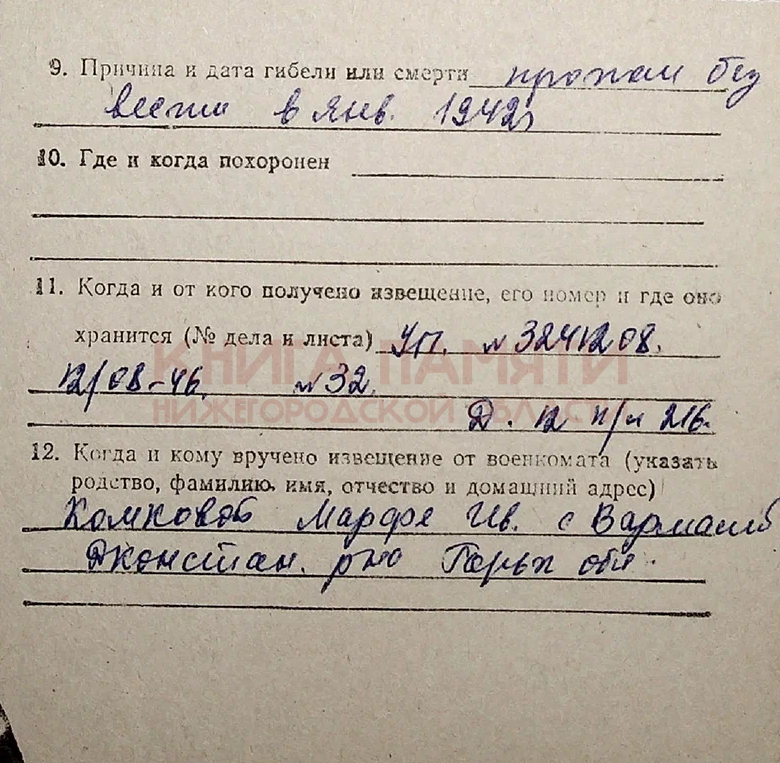 9. Причина и дата гибели или смерти пропал без
вести в янв. 1942г
10. Где и когда похоронен
11. Когда и от кого получено извещение, его номер и где оно
хранится (№ дела и листа) УП. №3241208.
КНИГА ПАМЯТИ
12/08-46. №32.
НИЖЕГОРОДСКОЙ ОБЛАСТИ
Д. 12 п/л 216.
12. Когда и кому вручено извещение от военкомата (указать
родство, фамилию, имя, отчество и домашний адрес)
Комковой Марфе Ив. с
Дконстан. р-на Горьк обл.